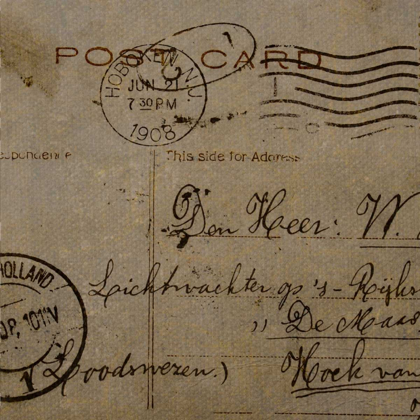 POST CARD
HOBOKEN, N.J.
JUN 21
7 30 PM
1908
This side for Address
Den Heer: W.
Lichtwachter op 's-Rijks
" De Maas
Loodswezen.) Hoek van
HOLLAND
1